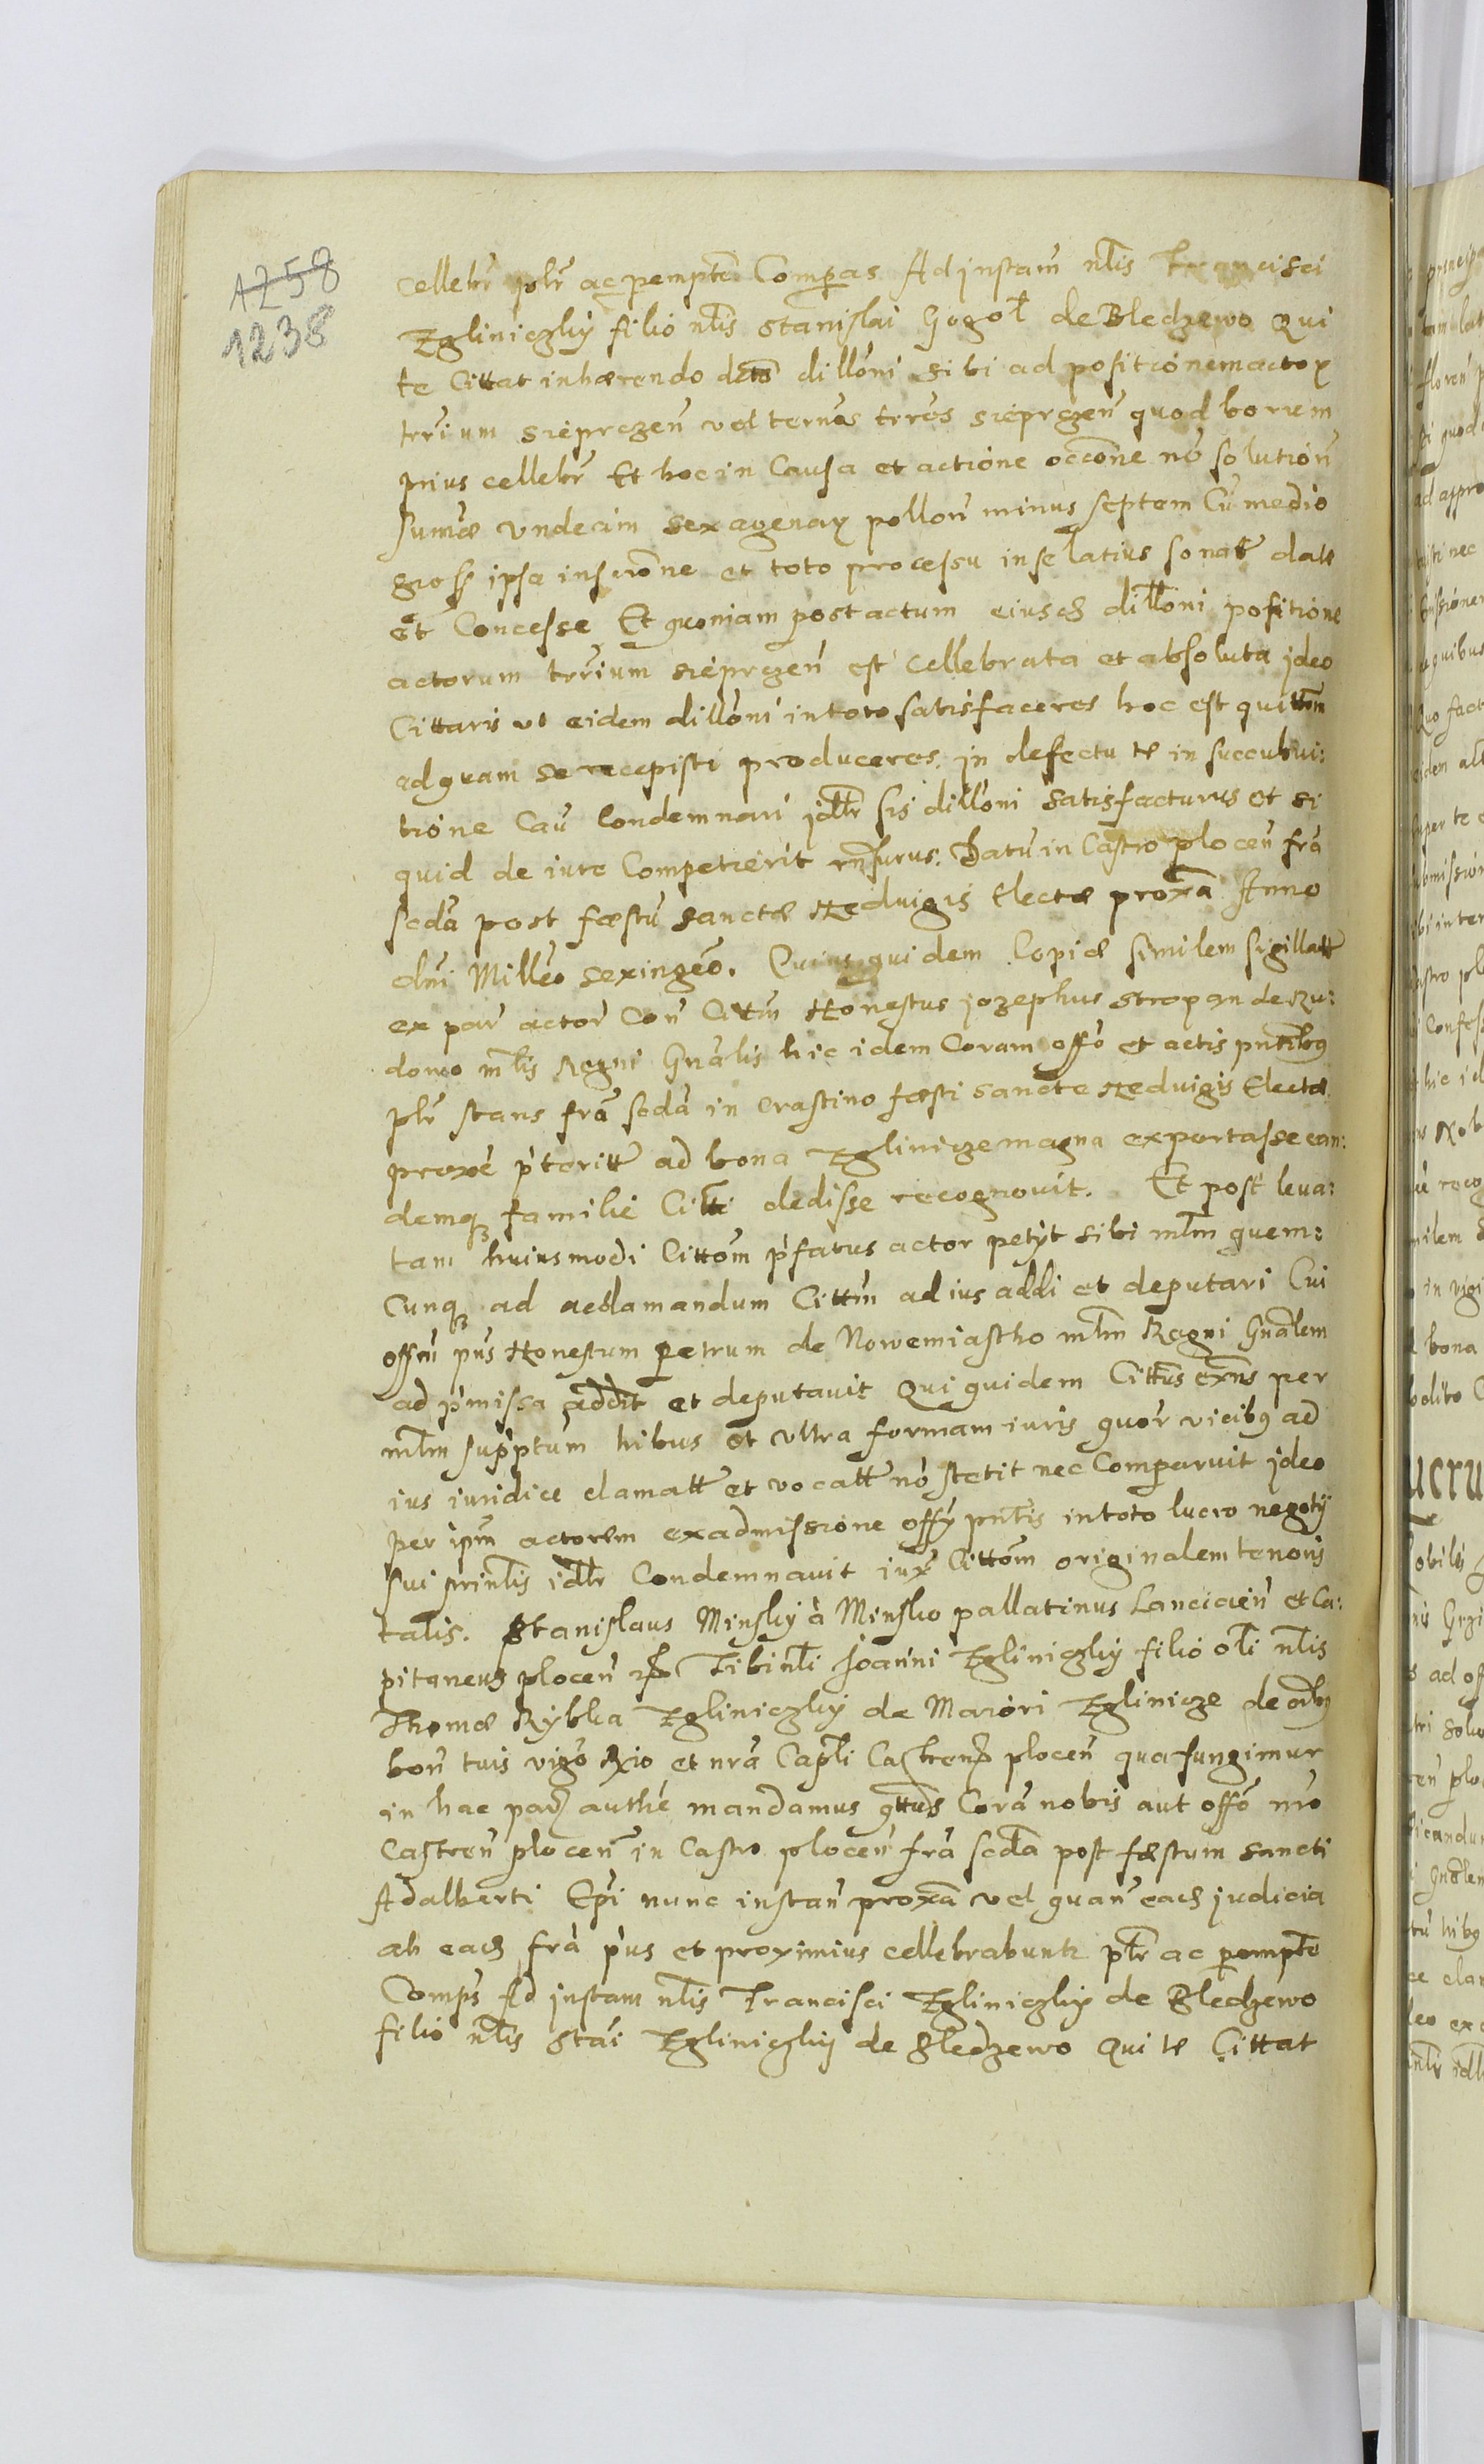 1258
1238
cellebr̃ pltr̃ ac pempte Comparas Ad instam̃ nłis Francisci
Zgliniczky filio nłis Stanislai Gogoł de Bledzewo Qui
te Cittat inhærendo dcto dillõni sibi ad positionem actoꝝ
trrium siéprczen̄ vel ternos trrõs siéprczen̄ quod horum
prius cellebr̃ Et hoc in Causa et actione occõne nõ solution̄
sumæ vndecim sexagenaꝝ pollon̄ minus septem Cū medio
gross ipsa inscrõne et toto processu in se latius sonatt datæ
et Concesse Et quoniam post actum eiusdꝫ dillõni positione
actorum trrium siéprczen̄ est cellebrata et absoluta ideo
Cittaris vt eidem dillõni in toto satisfaceres hoc est quittõm
ad quam se recepisti produceres. in defectu te in succubui:
tione Caū Condemnari jdtr sis dillõni satisfacturus et si
quid de iure Competierit rñsurus. Datū in Castro plocen̄ frã
scdã post fæstū sanctæ Hedvigis Electæ proxã Anno
dñi Millẽo sexingẽo. Cuius quidem Copiæ similem sigillatt
ex par̃ actor̃ Con̄ Cittm̃ Honestus jozephus stropan de Ru:
dowo młis Regni Gnãlis hic idem Coram offõ et actis pñtibꝫ
pltr̃ stans frã scdã in crastino fæsti sancte Hedvigis Electæ
proxé p̃teritt ad bona Zglinicze magna exportasse ean:
demqꝫ familie Citti dedisse recognouit. Et post leua:
tam huiusmodi Cittõm p̃fatus actor petÿt sibi młm quem:
cunqꝫ ad acclamandum Cittm̃ ad ius addi et deputari Cui
offm̃ pñs Honestum Petrum de Nowemiastho młm Regni Gnãlem
ad p̃missa addit et deputauit Qui quidem Cittus exñs per
młm supptum tribus et vltra formam iuris quor̃ vicibꝫ ad
ius iuridice clamatt et vocatt nõ stetit nec Comparuit jdeo
per ipm̃ actorem ex admissione offÿ pñtis in toto lucro negotÿ
sui prinłis idtr Condemnauit iux̃ Cittõm originalem tenoris
talis. Stanislaus Minsky à Minsko pallatinus Lancicien̄ et Ca:
pitaneus plocen̄ Tibi nłi Joanni Zgliniczky filio oli nłis
Thomæ Rybka Zgliniczky de Maiori Zglinicze de oĩbꝫ
bon̄ tuis vigõ Rio et nrã Capłi Castren̄ plocen̄ qua fungimur
in hac par̃ authẽ mandamus qttus Corã nobis aut offõ nrõ
Castren̄ plocen̄ in Castro plocen̄ frã scdã post fæstum sancti
Adalberti Epĩ nunc instan̄ proxã vel quan̄ eadꝫ judicia
ab eadꝫ frã p̃us et proximius cellebrabuntr pltr ac pempte
Comps̃ Ad instam nłis Francisci Zgliniczky de Bledzewo
filio nłis Stãi Zgliniczky de Bledzewo Qui te Cittat